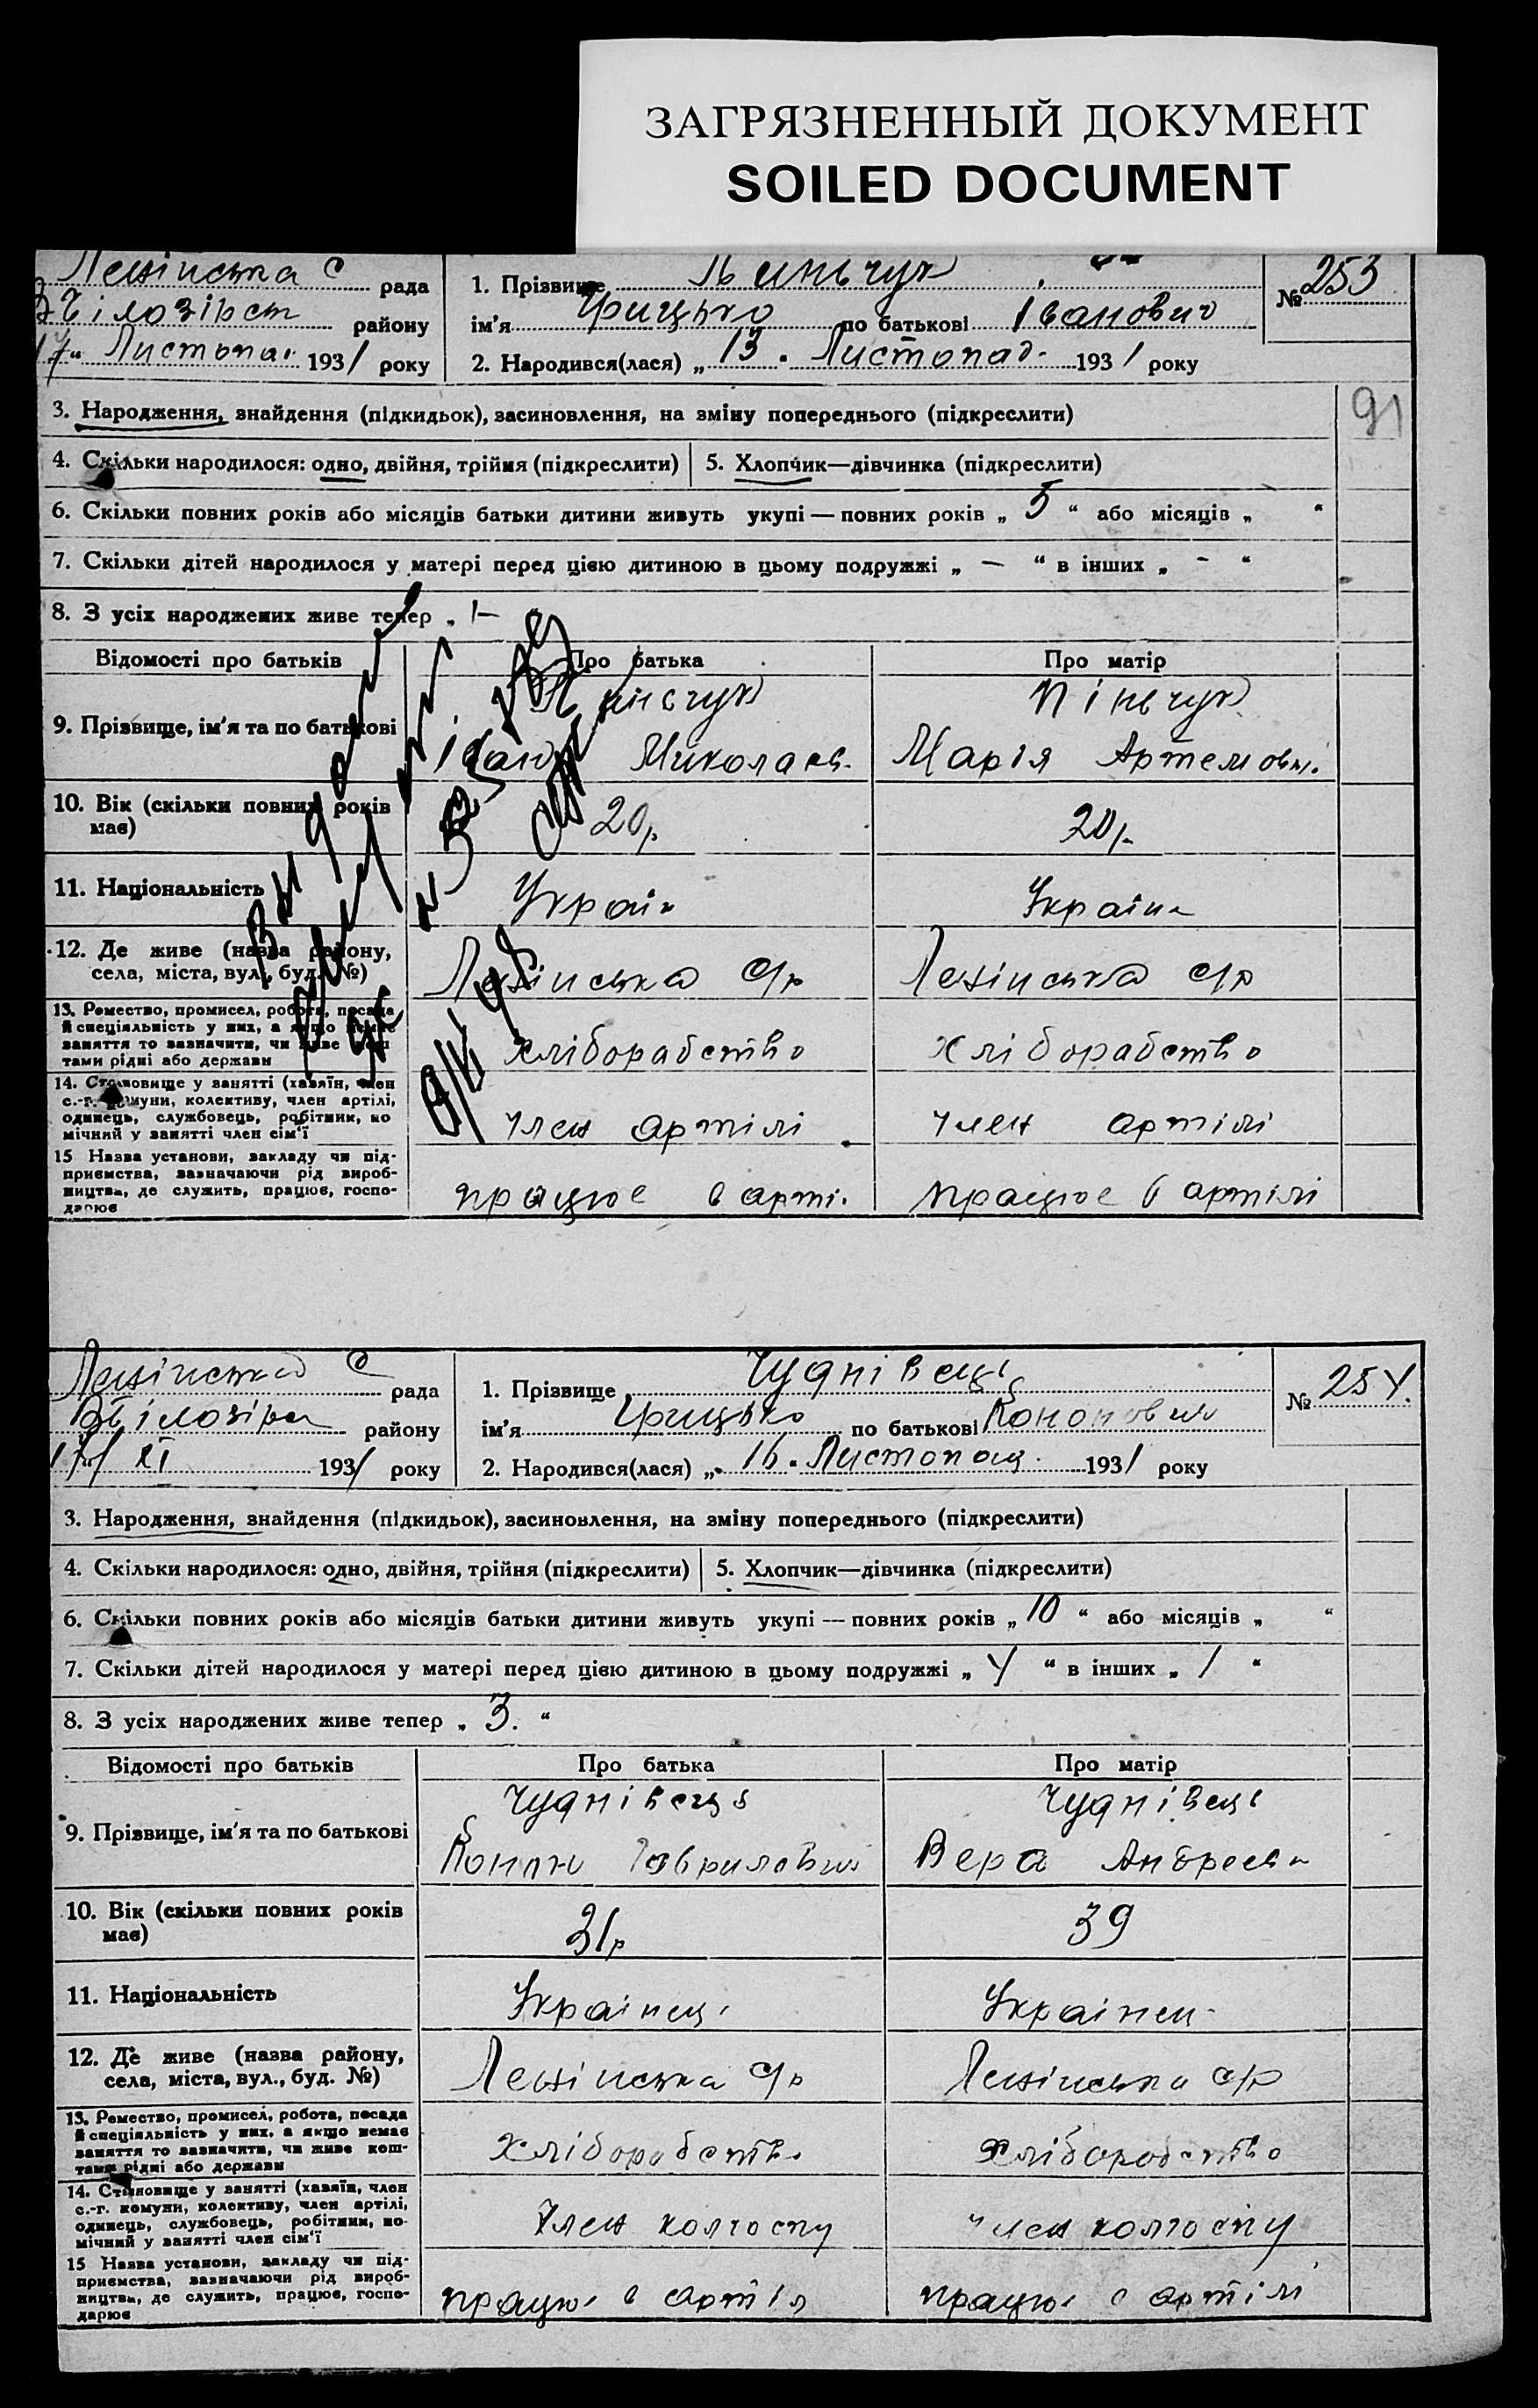 ЗАГРЯЗНЕННЫЙ ДОКУМЕНТ
SOILED DOCUMENT
Ленінська С рада
району
17 " Листопа 1931 року
1. Прізвище
ім'я Грицько по батькові Іванович
2. Народився(лася) „ 13 " Листопад 1931 року
№ 253
91
3. Народження, знайдення (підкидьок), засиновлення, на зміну попереднього (підкреслити)
4. Скільки народилося: одно, двійня, трійня (підкреслити) 5. Хлопчик—дівчинка (підкреслити)
6. Скільки повних років або місяців батьки дитини живуть укупі — повних років „ 5 “ або місяців „ “
7. Скільки дітей народилося у матері перед цією дитиною в цьому подружжі „ — “ в інших „ - “
8. З усіх народжених живе тепер „
Відомості про батьків Про батька Про матір
9. Прізвище, ім'я та по батькові
Іван Миколаєв. Марія Артемовн.
10. Вік (скільки повних років має) 20р 20р
11. Національність Україн Україн
12. Де живе (назва району, села, міста, вул., буд. №) Ленінська с/р Ленінська с/р
13. Ремество, промисел, робота, посада й спеціяльність у них, а якщо немає заняття то зазначити, чи живе коштами рідні або держави хліборабство хліборабство
14. Становище у занятті (хазяїн, член с.-г. комуни, колективу, член артілі, одинець, службовець, робітник, помічний у занятті член сім'ї член артілі член артілі
15 Назва установи, закладу чи підприємства, зазначаючи рід виробництва, де служить, працює, господарює працює в арті. працює в артілі
Ленінська С рада
району
17/XI 1931 року
1. Прізвище Чуднівець
ім'я Грицько по батькові Кононович
2. Народився(лася) „ 16 " Листопад 1931 року
№ 254.
3. Народження, знайдення (підкидьок), засиновлення, на зміну попереднього (підкреслити)
4. Скільки народилося: одно, двійня, трійня (підкреслити) 5. Хлопчик—дівчинка (підкреслити)
6. Скільки повних років або місяців батьки дитини живуть укупі — повних років „ 10 “ або місяців „ “
7. Скільки дітей народилося у матері перед цією дитиною в цьому подружжі „ 4 “ в інших „ 1 “
8. З усіх народжених живе тепер „ 3. “
Відомості про батьків Про батька Про матір
Чуднівець Чуднівець
9. Прізвище, ім'я та по батькові
Конон Гаврилович Вера Андреевн
10. Вік (скільки повних років має) 31р 39
11. Національність Українець Українец
12. Де живе (назва району, села, міста, вул., буд. №) Ленінська с/р Ленінська с/р
13. Ремество, промисел, робота, посада й спеціяльність у них, а якщо немає заняття то зазначити, чи живе коштами рідні або держави хліборобство хліборобство
14. Становище у занятті (хазяїн, член с.-г. комуни, колективу, член артілі, одинець, службовець, робітник, помічний у занятті член сім'ї Член колгоспу член колгоспу
15 Назва установи, закладу чи підприємства, зазначаючи рід виробництва, де служить, працює, господарює працює в артіл працює в артілі